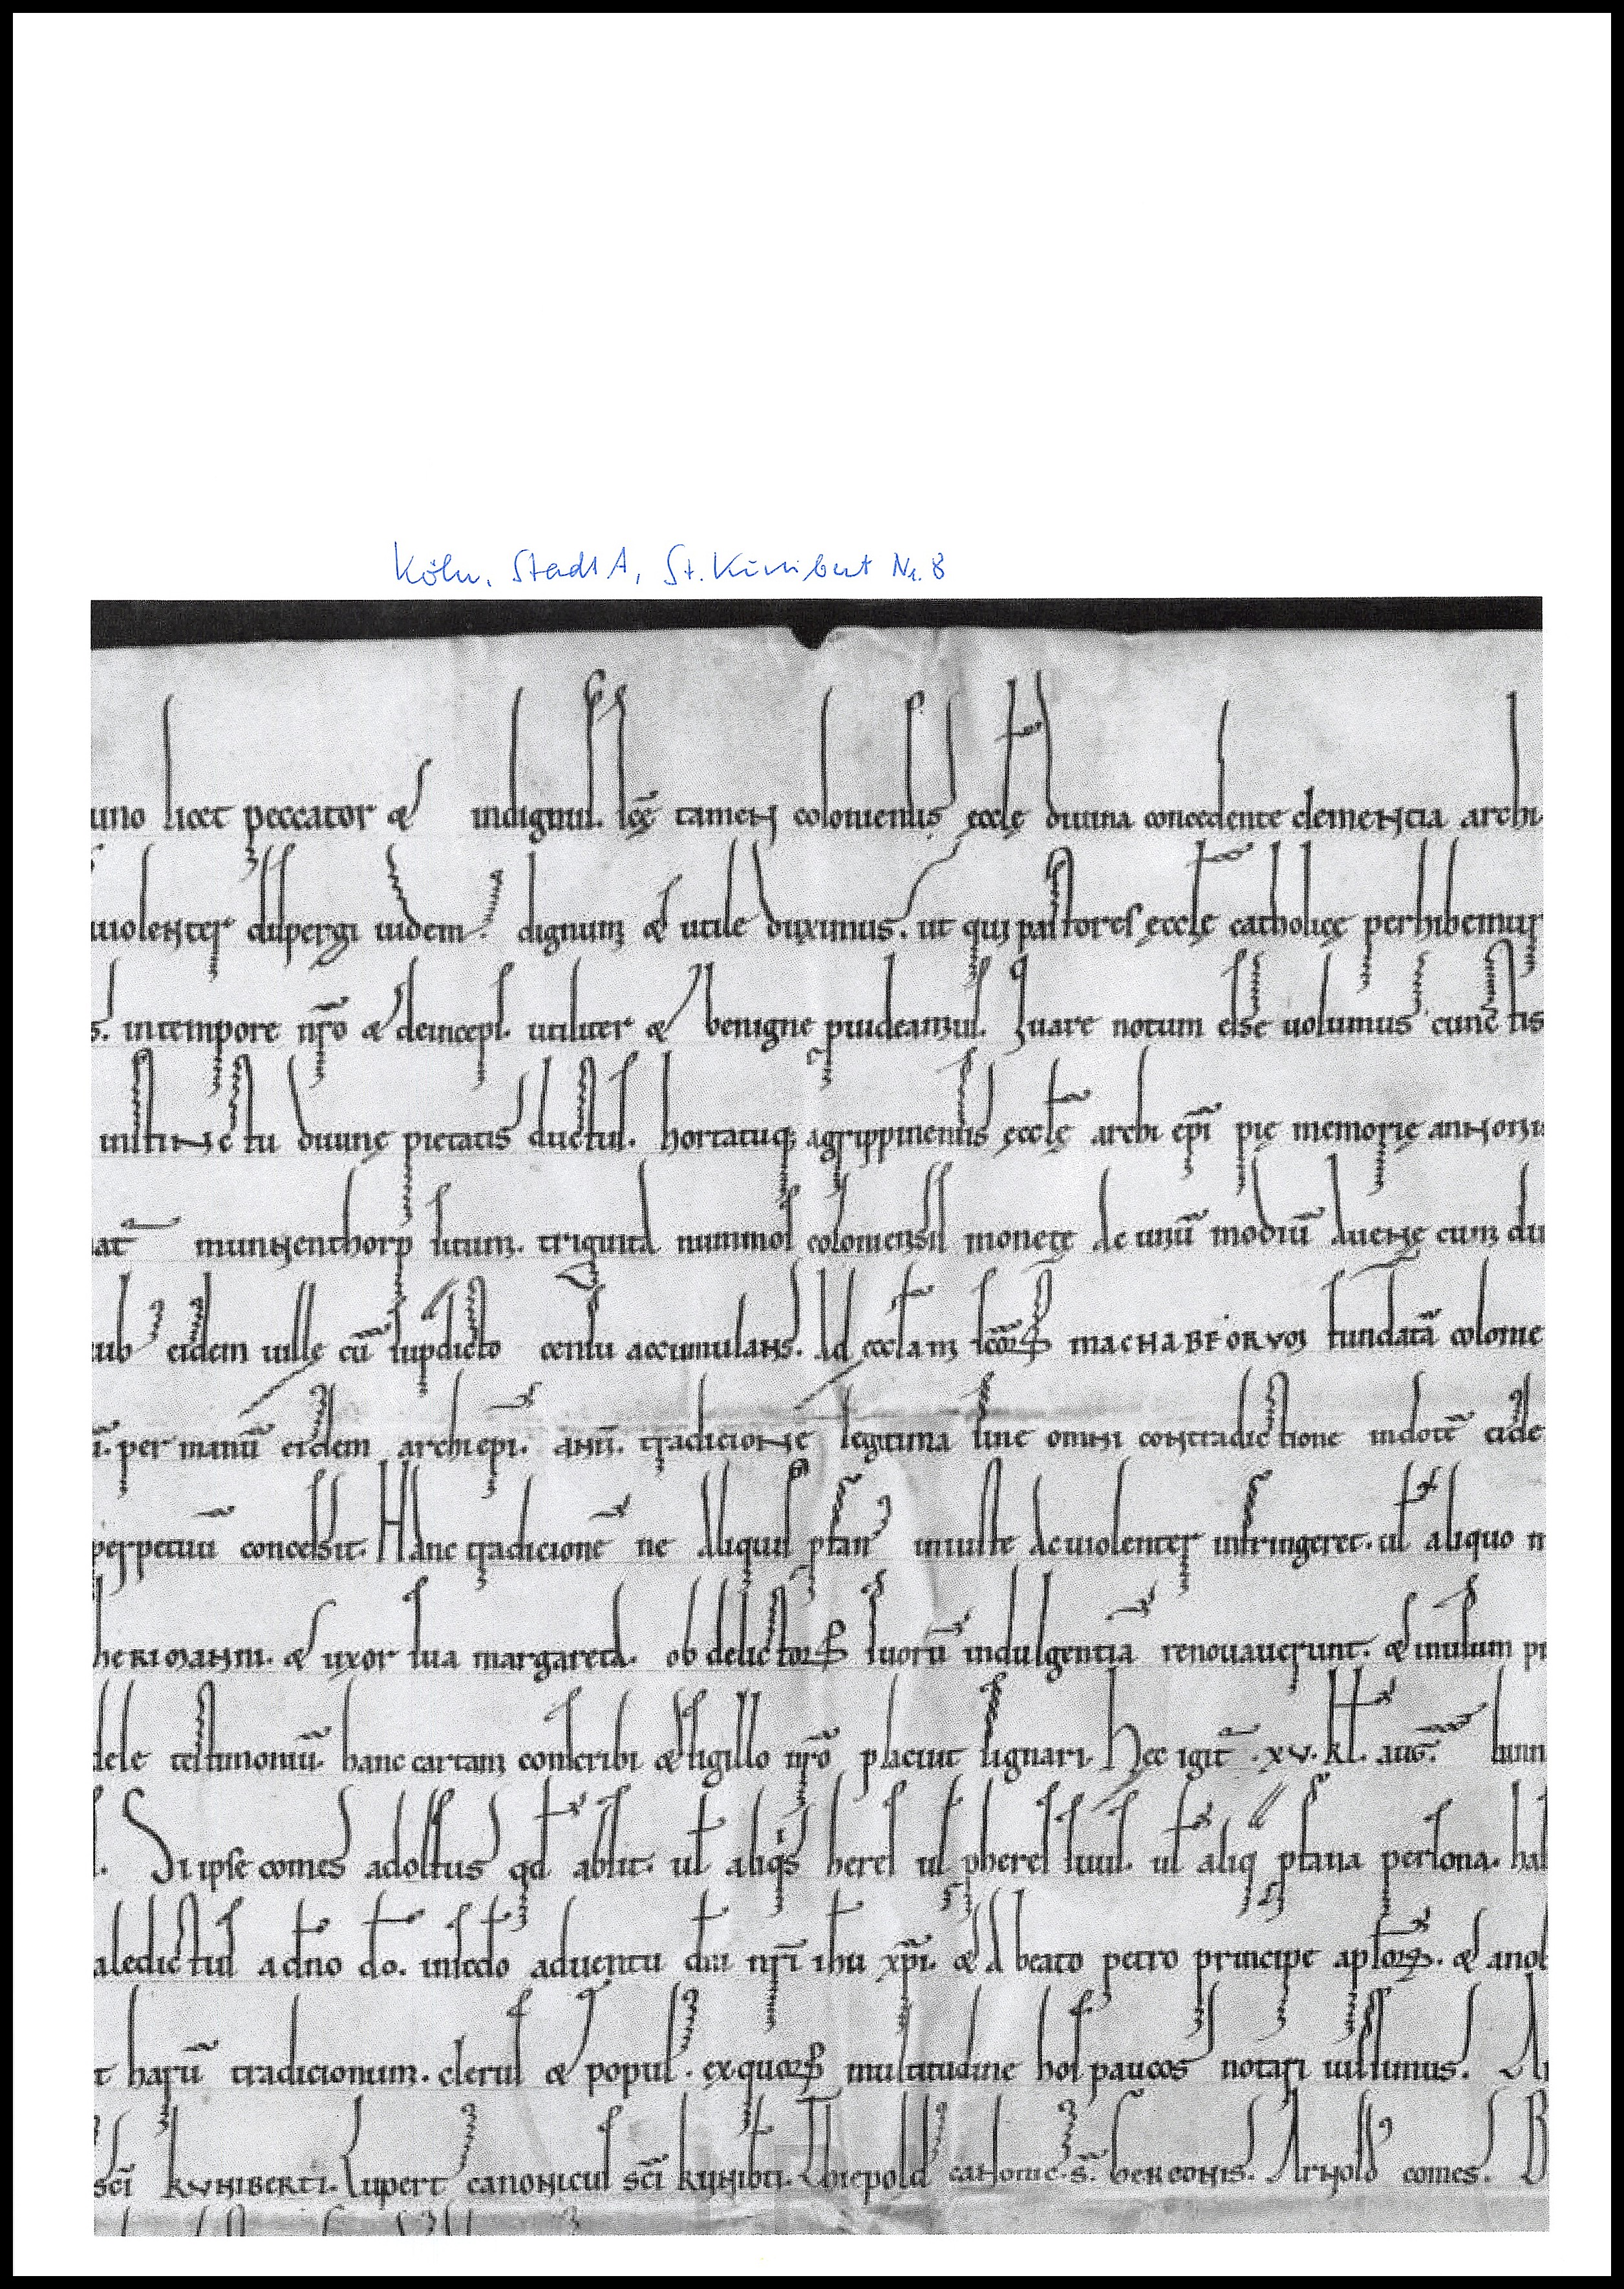 Köln, StadtA, St. Kunibert Nr. 8
uno licet peccator & indignus. scę tamen coloniensis ęccłę diuina concedente clementia archi
uiolenter dispergi uidem dignum & utile duximus. ut qui pastores ęccłę catholicę perhibemur
s. in tempore nr̄o & deinceps. utiliter & benigne puideamus. Quare notum esse uolumus cunctis
instinctu diuinę pietatis ductus. hortatuq; agrippinensis ęccłę archi ep̄i pię memorię annonis
at munhenthorp situm. triginta nummos coloniensis monetę ac unū modiū auenę cum du
sub eidem uillę cū sup̄dicto censu accumulans. Ad ęccłam scōꝝ machabeorum fundatā colonie
ī. per manū eidem archiepi. ann̄. tradicione legitima sine omni contradictione in dotē eide
perpetuū concessit. Hanc tradicionē ne aliquis p̄fan' iniuste ac uiolenter infringeret. uł aliquo m
herimann. & uxor sua margareta. ob delictoꝝ suorū indulgentiā renouauerunt. & insulam
dele testimoniū. hanc cartam conscribi & sigillo nr̄o placuit signari. Hec igit̄ .xv. kł. aug̅.
Si ipse comes adolfus qd̄ absit. uł aliq's heres uł p̄heres suus. uł aliq p̄fana persona.
aledictus a dn̄o dō. in sc̄do aduentu dn̄i nr̄i ih̄u xp̄i. & a beato petro principe apłoꝝ. &
t harū tradicionum. clerus & popul'. ex quoꝝ multitudine hos paucos notari uisimus.
sc̄i kuniberti. Lupert canonicus sc̄i kunib̄ti. Thiepold canonic. s̄. Gereonis. Arnold comes. B